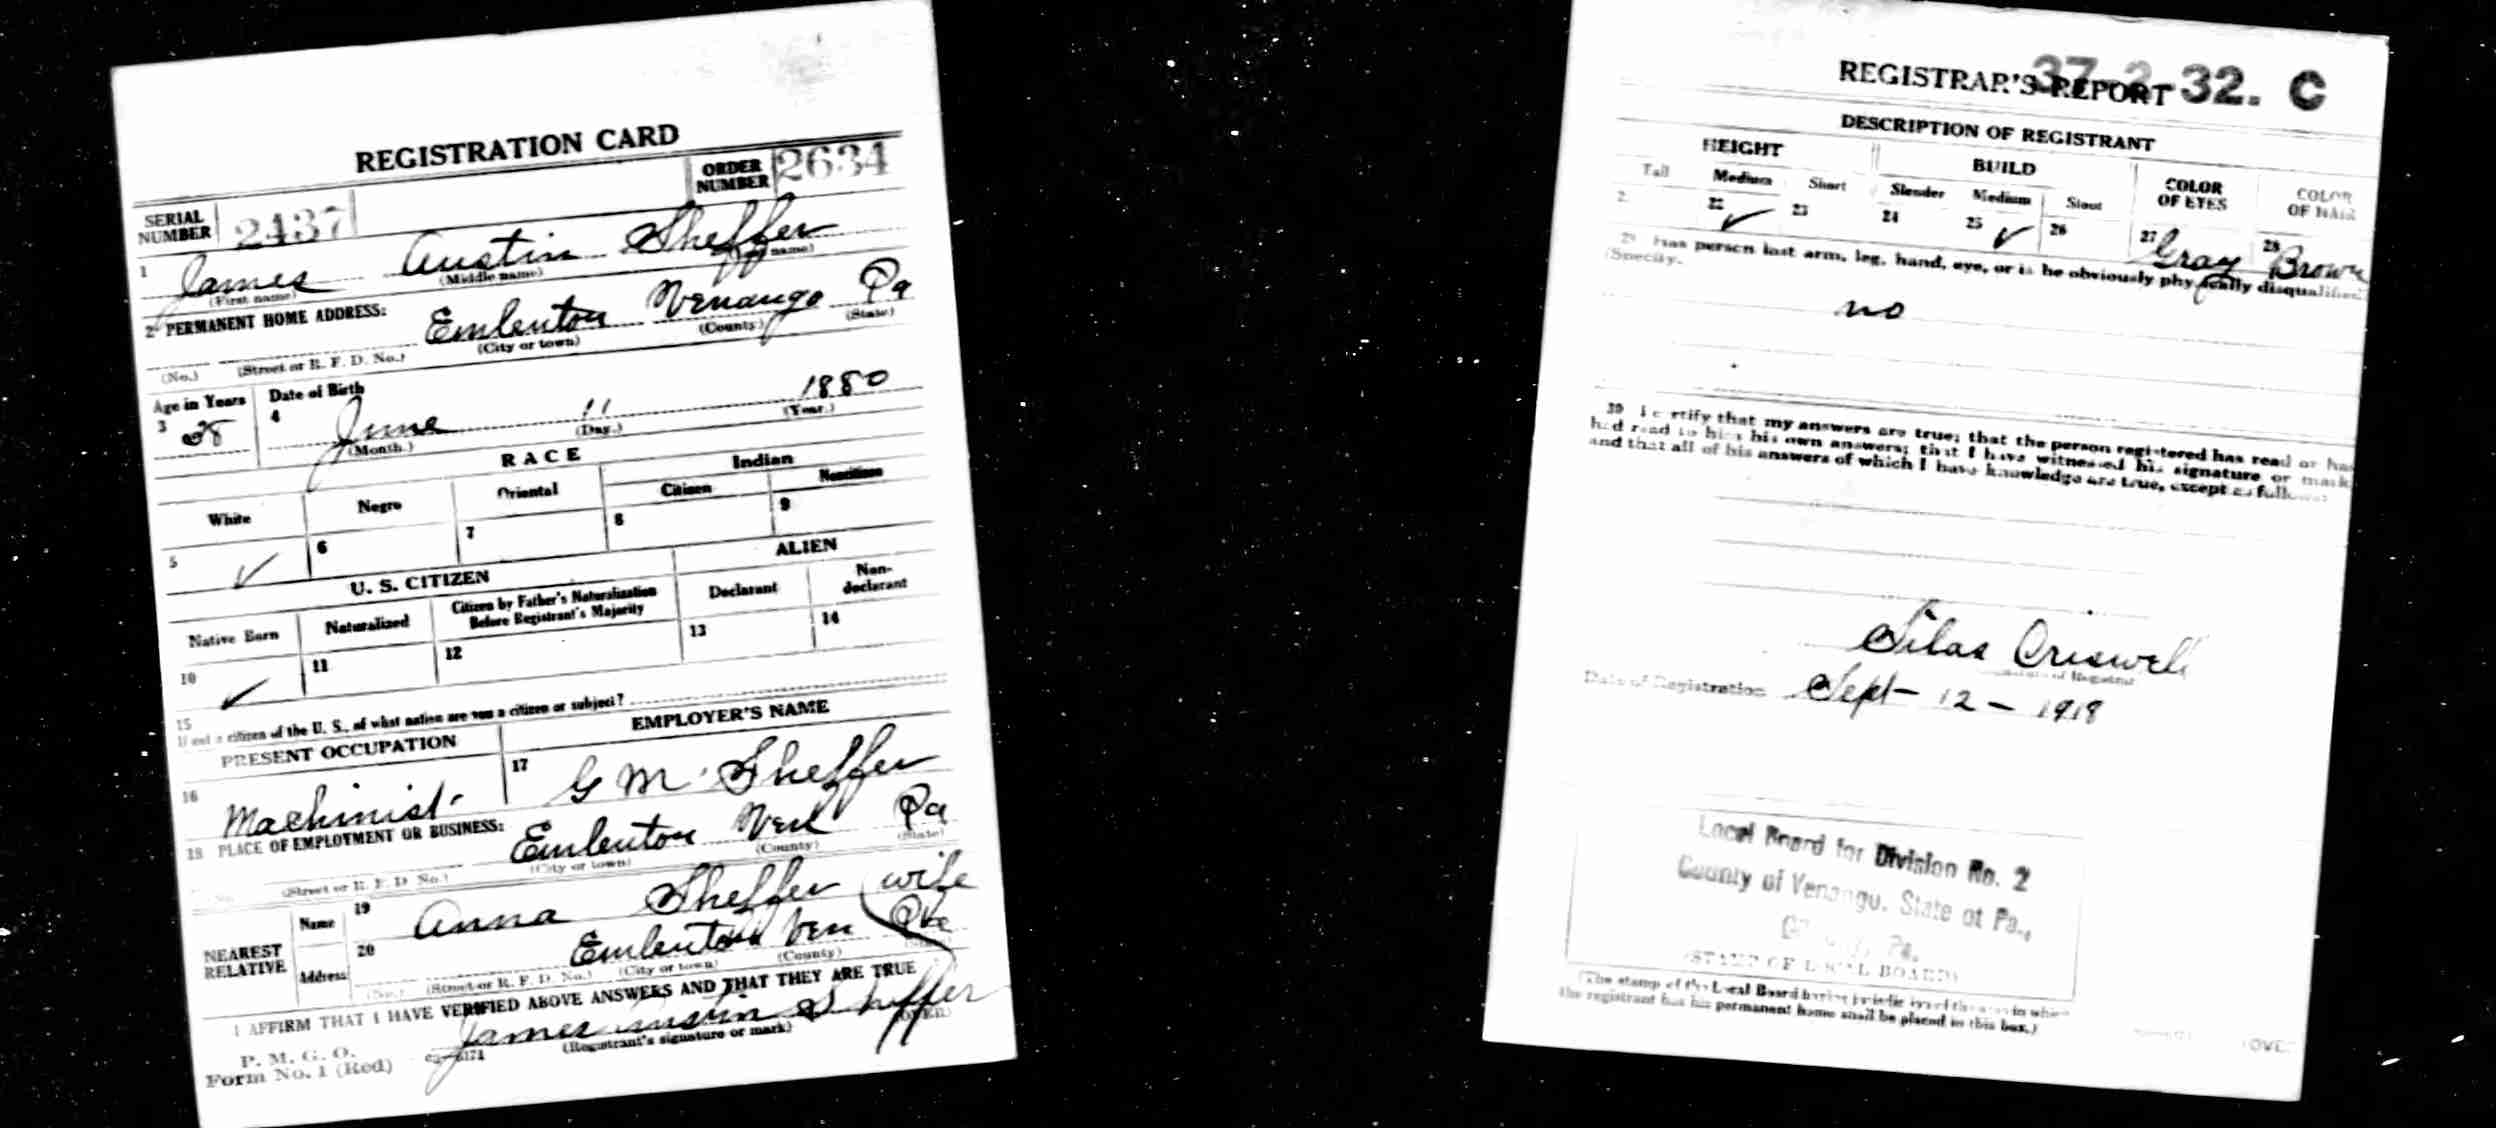 REGISTRATION CARD
SERIAL NUMBER 2437 ORDER NUMBER 2634
1 James Austin Sheffer
(First name) (Middle name) name)
2 PERMANENT HOME ADDRESS:
Emlenton Venango Pa
(No.) (Street or R. F. D. No.) (City or town) (County) (State)
Age in Years Date of Birth
3 38 4 June 11 1880
(Month.) (Day.) (Year.)
RACE
White Negro Oriental Indian
Citizen Noncitizen
5 ✓ 6 7 8 9
U. S. CITIZEN ALIEN
Native Born Naturalized Citizen by Father's Naturalization Before Registrant's Majority Declarant Non-declarant
10 ✓ 11 12 13 14
15 If not a citizen of the U. S., of what nation are you a citizen or subject?
PRESENT OCCUPATION EMPLOYER'S NAME
16 Machinist 17 G M Sheffer
18 PLACE OF EMPLOYMENT OR BUSINESS:
Emlenton Ven Pa
No. (Street or R. F. D. No.) (City or town) (County) (State)
NEAREST RELATIVE Name 19 Anna Sheffer (wife
Address 20 Emlenton Ven
(No.) (Street or R. F. D. No.) (City or town) (County)
I AFFIRM THAT I HAVE VERIFIED ABOVE ANSWERS AND THAT THEY ARE TRUE
P. M. G. O.
Form No. 1 (Red) James Austin Sheffer
(Registrant's signature or mark) (OVER)
37-2-32. C
REGISTRAR'S REPORT
DESCRIPTION OF REGISTRANT
HEIGHT BUILD COLOR OF EYES COLOR OF HAIR
Tall Medium Short Slender Medium Stout
22 ✓ 23 24 25 ✓ 26 27 Gray 28 Brown
29 Has person lost arm, leg, hand, eye, or is he obviously physically disqualified?
(Specify.
no
30 I certify that my answers are true; that the person registered has read or has
had read to him his own answers; that I have witnessed his signature or mark
and that all of his answers of which I have knowledge are true, except as follows:
Silas Criswell
of Registrar
Date of Registration Sept - 12 - 1918
Local Board for Division No. 2
County of Venango. State of Pa.,
Pa.
(STAMP OF LOCAL BOARD)
(The stamp of the Local Board having jurisdiction of the area in which
the registrant has his permanent home shall be placed in this box.)
(OVE